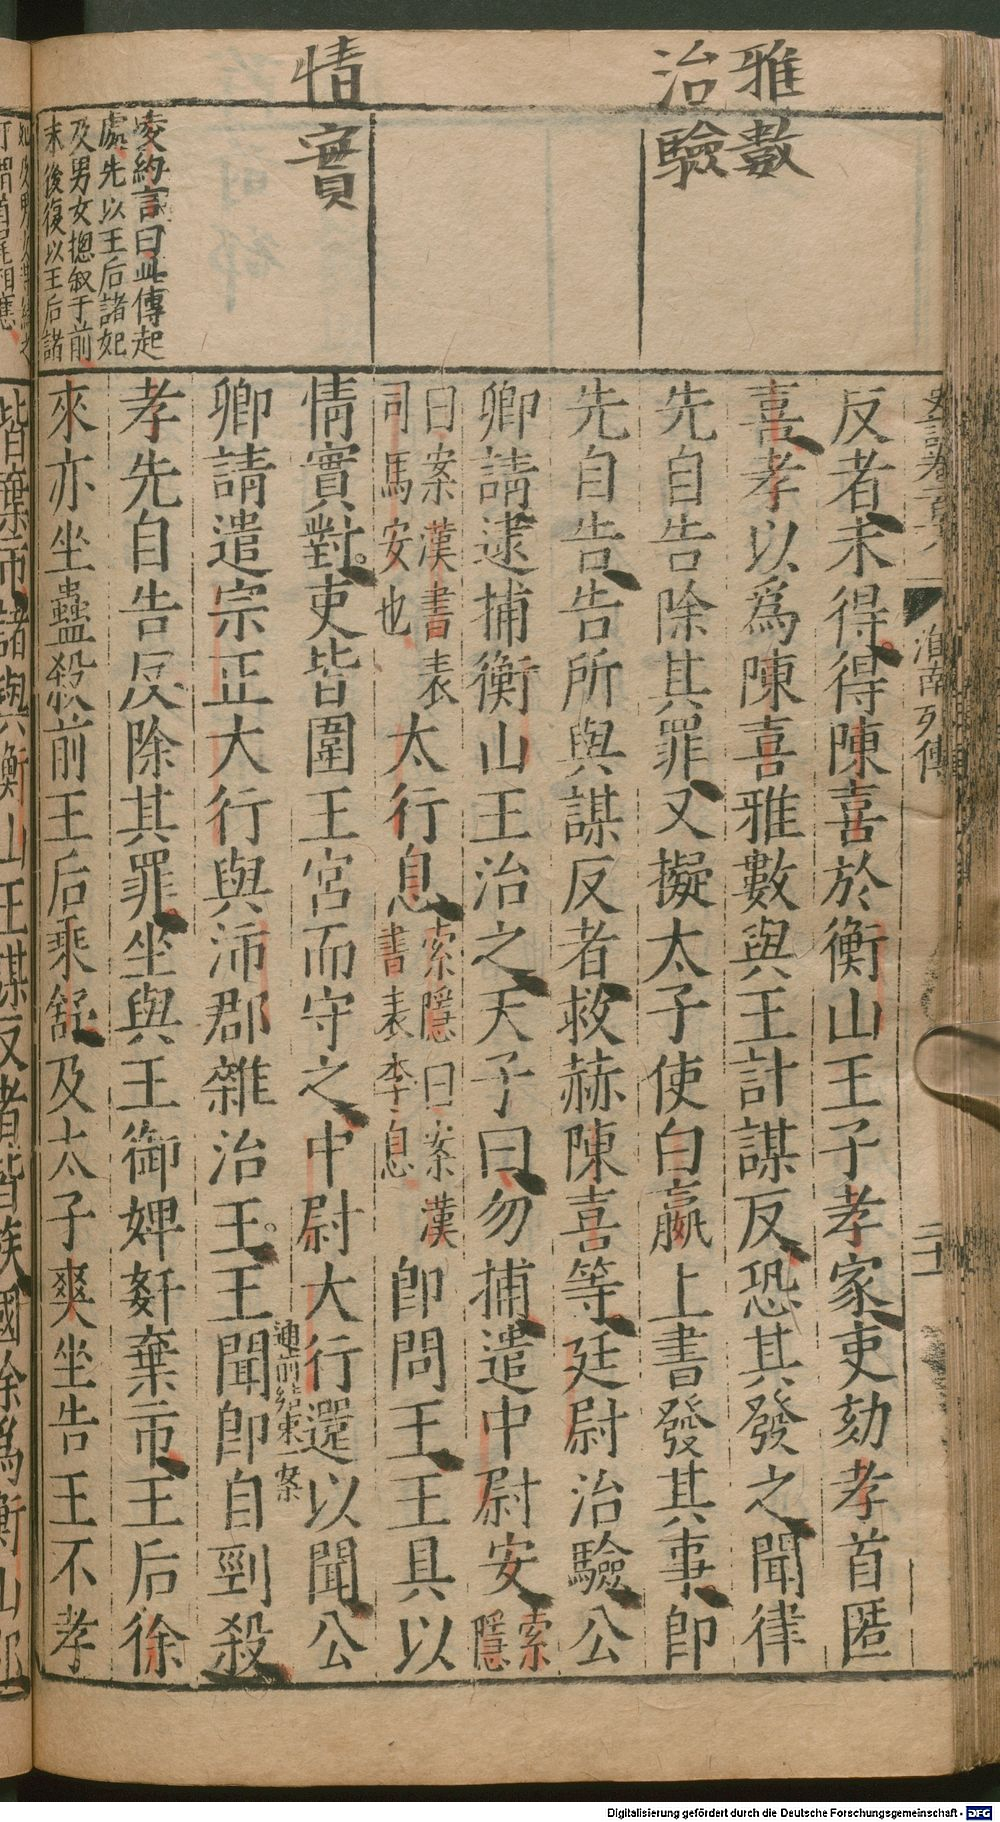 雅數
治驗
情實
凌約言曰此傳起
處先以王后諸妃
及男女摠叙于前
末後復以王后諸
淮南列傳
二十一
反者未得得陳喜於衡山王子孝家吏劾孝首匿
喜孝以爲陳喜雅數與王計謀反恐其發之聞律
先自告除其罪又擬太子使白嬴上書發其事卽
先自告告所與謀反者救赫陳喜等廷尉治驗公
卿請逮捕衡山王治之天子曰勿捕遣中尉安索隱
曰案漢書表司馬安也太行息索隱曰案漢書表李息卽問王王具以
情實對吏皆圍王宮而守之中尉大行還以聞公
連前結束一案
卿請遣宗正大行與沛郡雜治王王聞卽自剄殺
孝先自告反除其罪坐與王御婢姧棄市王后徐
來亦坐蠱殺前王后乘舒及太子爽坐告王不孝
皆棄市諸與衡山王謀反者皆族國除爲衡山郡
Digitalisierung gefördert durch die Deutsche Forschungsgemeinschaft - DFG